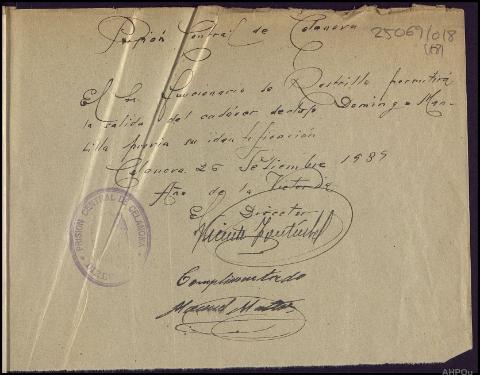 Prisión Central de Celanova
25069/018
(18)
El Sr. Funcionario de Rastrillo permitirá
la salida del cadáver de Domingo Man-
silla previa su identificación
Celanova 26 Setiembre 1939
Año de la Victoria
El Director
Vicente
Complimentado
Manuel
PRISIÓN CENTRAL DE CELANOVA
AHPOu